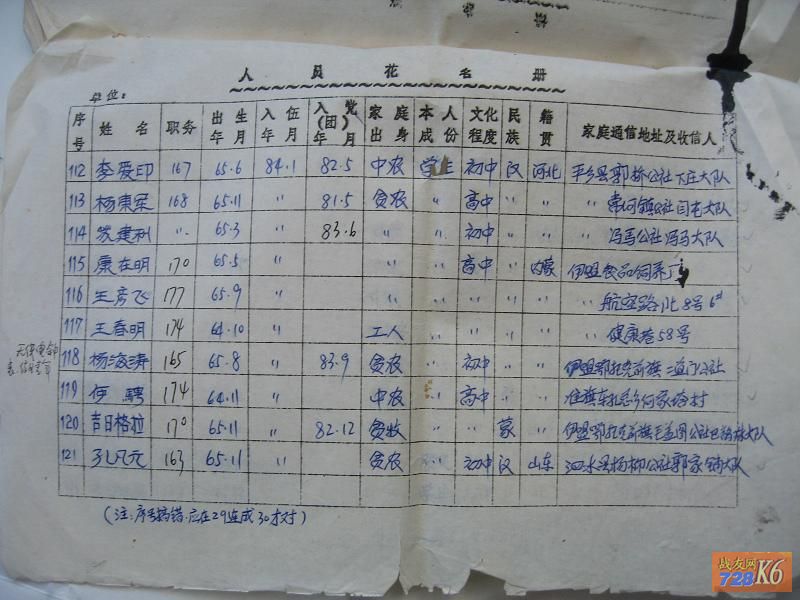 人员花名册
单位:
序号 姓名 职务 出生年月 入伍年月 入党(团)年月 家庭出身 本人成份 文化程度 民族 籍贯 家庭通信地址及收信人
112 李爱印 167 65.6 84.1 82.5 中农 学生 初中 汉 河北 平乡县郭桥公社下庄大队
113 杨东军 168 65.11 〃 81.5 贫农 〃 高中 〃 〃 〃 常河镇公社闫屯大队
114 建利 〃 65.3 〃 83.6 〃 〃 初中 〃 〃 〃 冯马公社冯马大队
115 康在明 170 65.5 〃 〃 〃 高中 〃 内蒙 伊盟食品饲养厂
116 王彦飞 177 65.9 〃 〃 〃 〃 〃 〃 〃 航空路北8号6#
117 王春明 174 64.10 〃 工人 〃 〃 〃 〃 〃 健康巷58号
118 杨海涛 165 65.8 〃 83.9 贫农 〃 初中 〃 〃 伊盟鄂托克前旗三道门公社
119 伊骋 174 64.11 〃 中农 〃 高中 〃 〃 准旗 何家塔村
120 吉日格拉 170 65.11 〃 82.12 贫牧 〃 〃 蒙 〃 伊盟鄂托克前旗毛盖图公社 大队
121 孔凡元 163 65.11 〃 贫农 〃 初中 汉 山东 泗水县杨柳公社郭家铺大队
(注:序号搞错.应在29连成30才对)
战友网
728K6